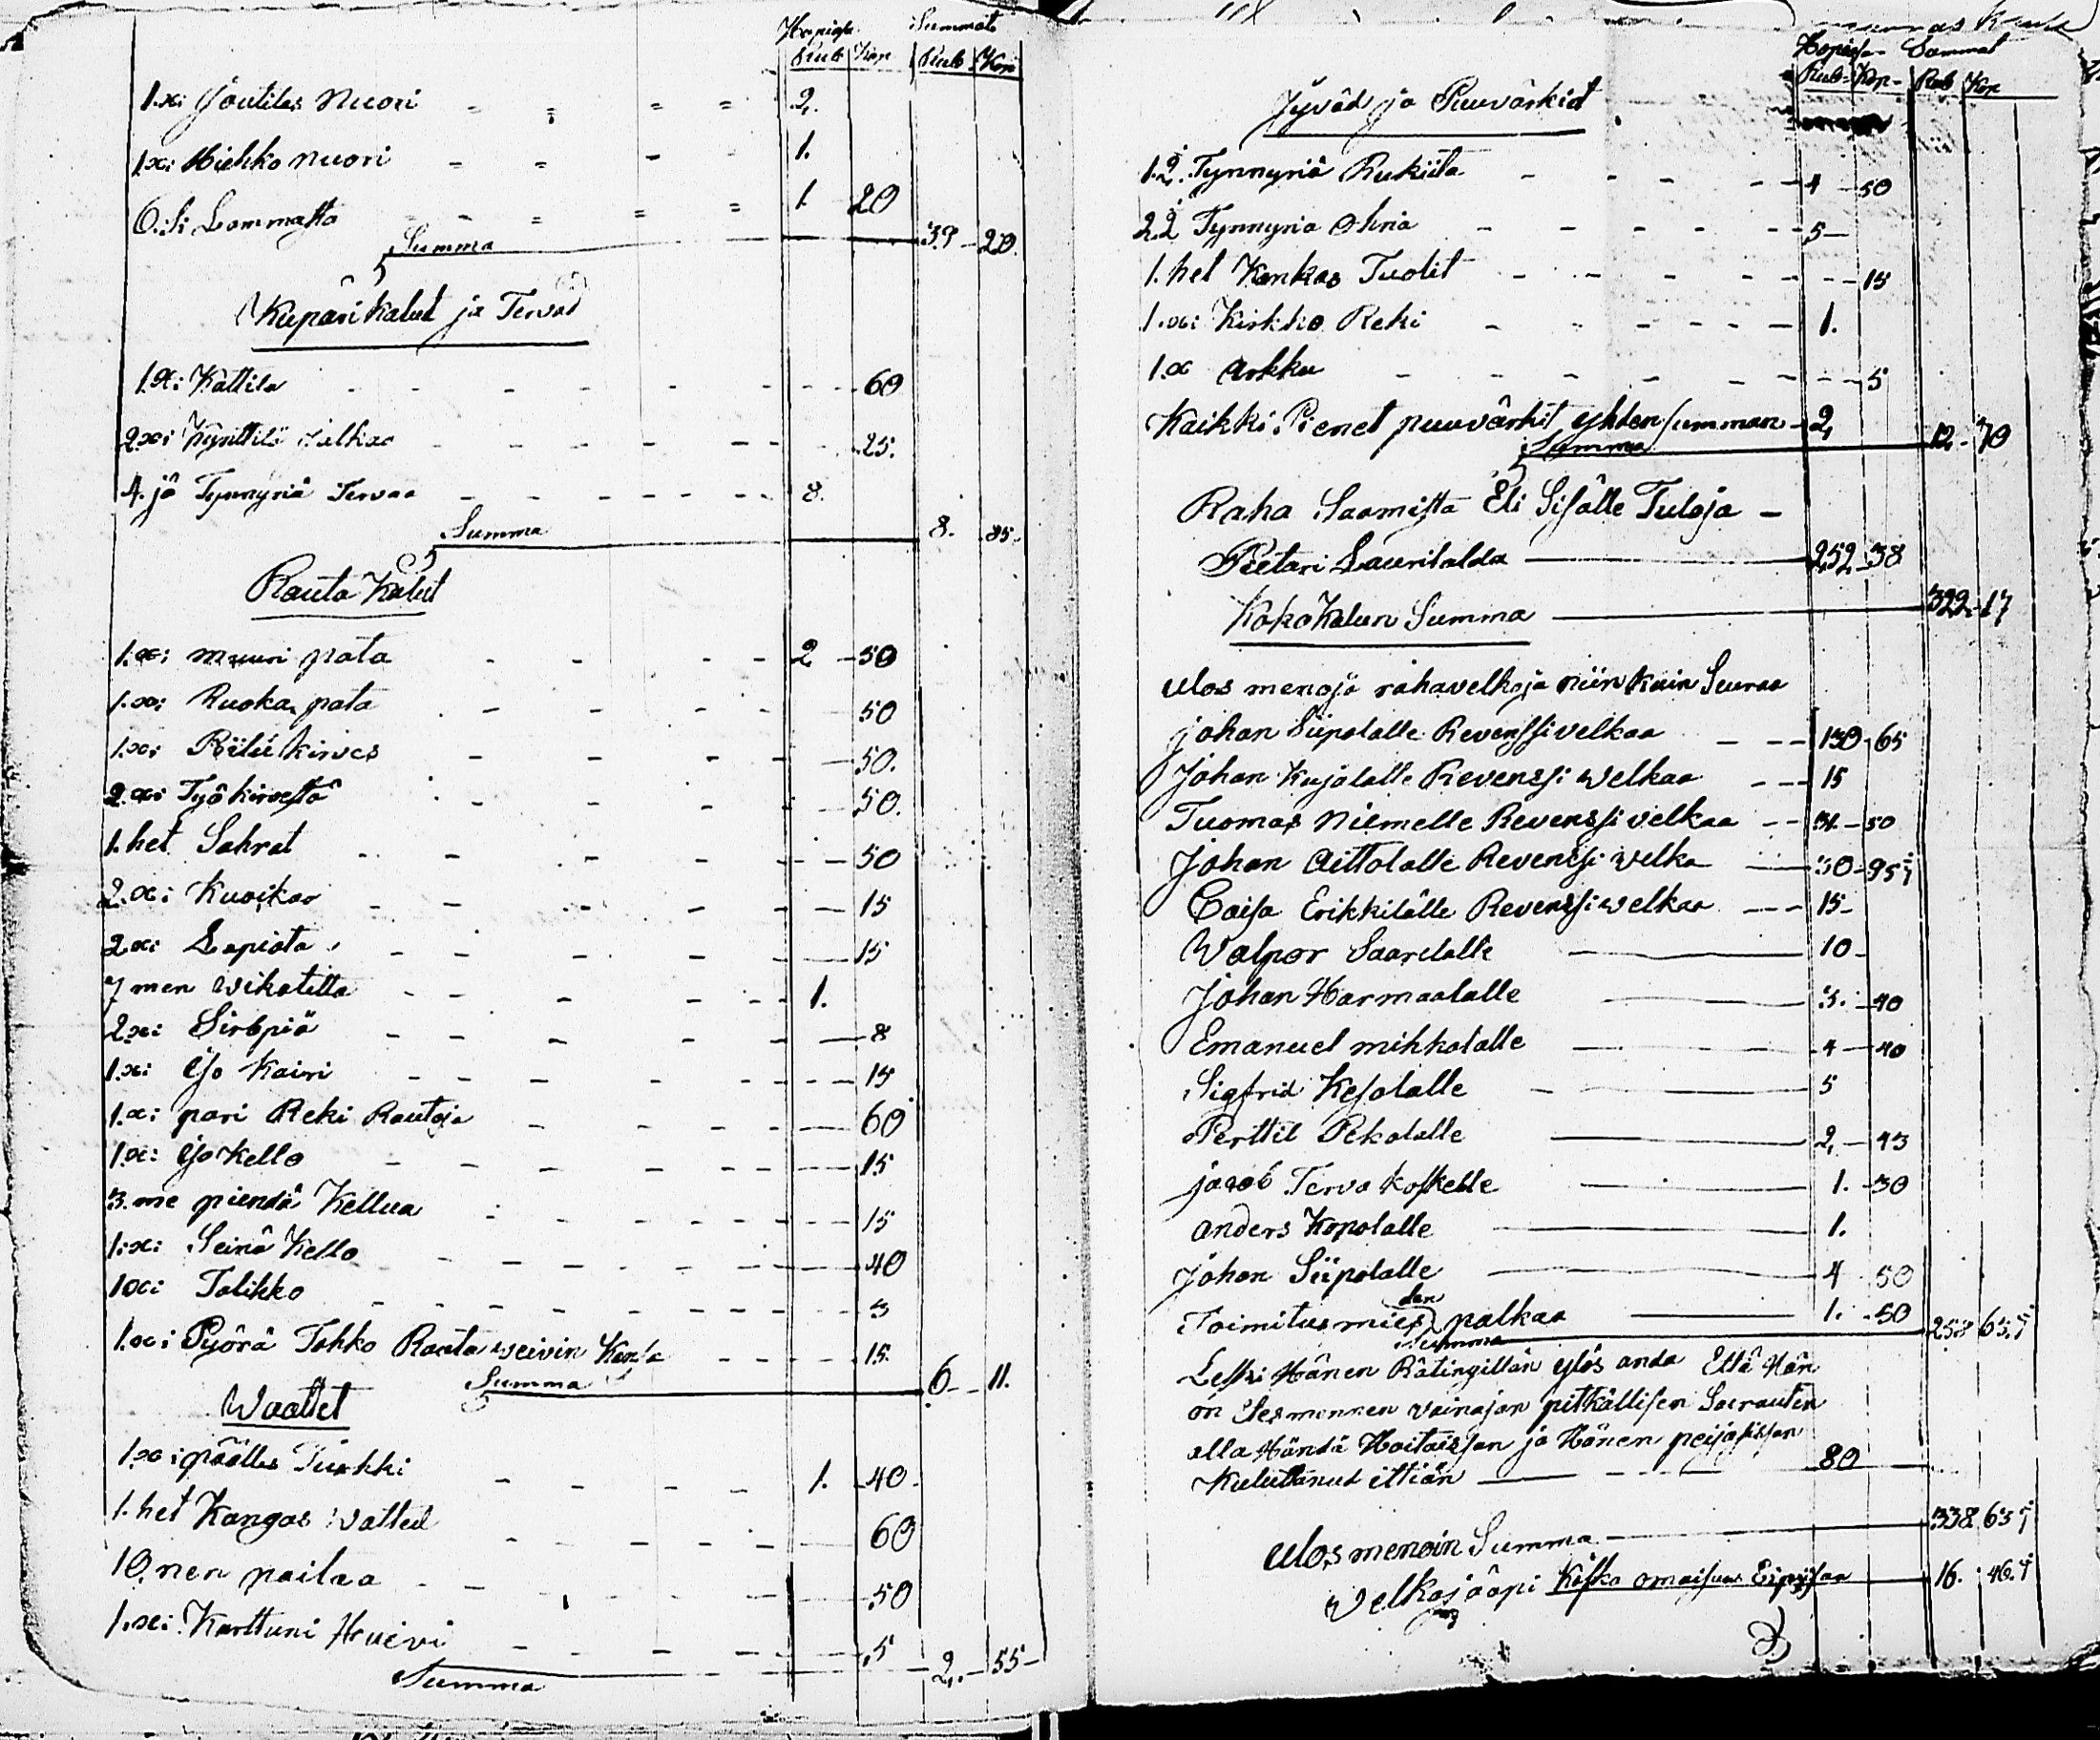 Hopiasa Summat
Rub Kop Rub Kop
1.xi Joutilas Nuori 2.
1.xi Hiehko nuori 1.
6.si Lammasta 1 20
Summa 39 - 20.
Kupari kalut ja Tervat
1.xi Kattila 60
2.xi Kynttilä Jalkaa 25.
4.jä Tynnyriä Tervaa 8.
Summa 8. 85.
Rauta Kalut
1.xi muuri pata 2 - 50
1.xi Ruoka pata 50
1.xi Piilu kirves 50.
2.xi Työkirvestä 50.
1.het Sahrat 50
2.xi Kuokaa 15
2.xi Lapiota 15
7 men wikatetta 1.
2.xi Sirpiä 8
1.xi iso Kairi 15
1.xi pari Reki Rautoja 60
1.xi iso Kello 15
3.me piendä Kellua 15
1.xi Seinä Kello 40
1xi Talikko 3
1.xi Pyörä Tahko Rauta weivin Kansa 15.
Summa 6 - 11.
Waattet
1.xi päälles Turkki 1. 40.
1.het Kangas Watted 60
10.nen paitaa 50
1.xi Karttuni Huivi 5
Summa 2. - 55 -
Hopiasa Summat
Rub - Kop - Rub Kop
Jyväd ja Puuvärkid
1.2 Tynnyriä Rukiita 4 - 50
2.2 Tynnyria ohria 5 -
1.het Kankas Tuolit 15
1.xi Kirkko Reki 1.
1.x Arkku 5
Kaikki Pienet puuvärkit yhten summan 2,
Summa 12 - 70
Raha Saamista Eli Sisälle Tuloja -
Pietari Lauritalda 252 - 38
Koko Kalun Summa 322 - 17
Ulos menojä rahavelkoja niin kuin Seuraa
Johan Siipolalle Revenssivelkaa 130 - 65
Johan Kujalalle Revenssi welkaa 15
Tuomas Niemelle Revenssi velkaa 31. - 50
Johan Aittolalle Revenssi welka 30 - 95
Caisa Erikkilälle Revenssi welkaa 15 -
Walpor Saarelalle 10 -
Johan Harmaalalle 3. - 40
Emanuel mikkolalle 4 - 40
Sigfrid Kesolalle 5
Perttil Pekolalle 2, - 43
jacob Terva koskelle 1. - 30
anders Kopolalle 1.
Johan Siipolalle 4 50
Toimitus miesden palkaa 1. - 50
Summa 258 63
Leski Hänen Rätingillän ylös anda Että Hän
on Edesmennen vainajan pitkällisen Sairauten
alla Händä Hoitaissan ja Hänen peijaissan
Kuluttanut ittiän 80
Ulos menoin Summa 338 63
Velkajääpi Koska omaisuus Ei 16. 46.